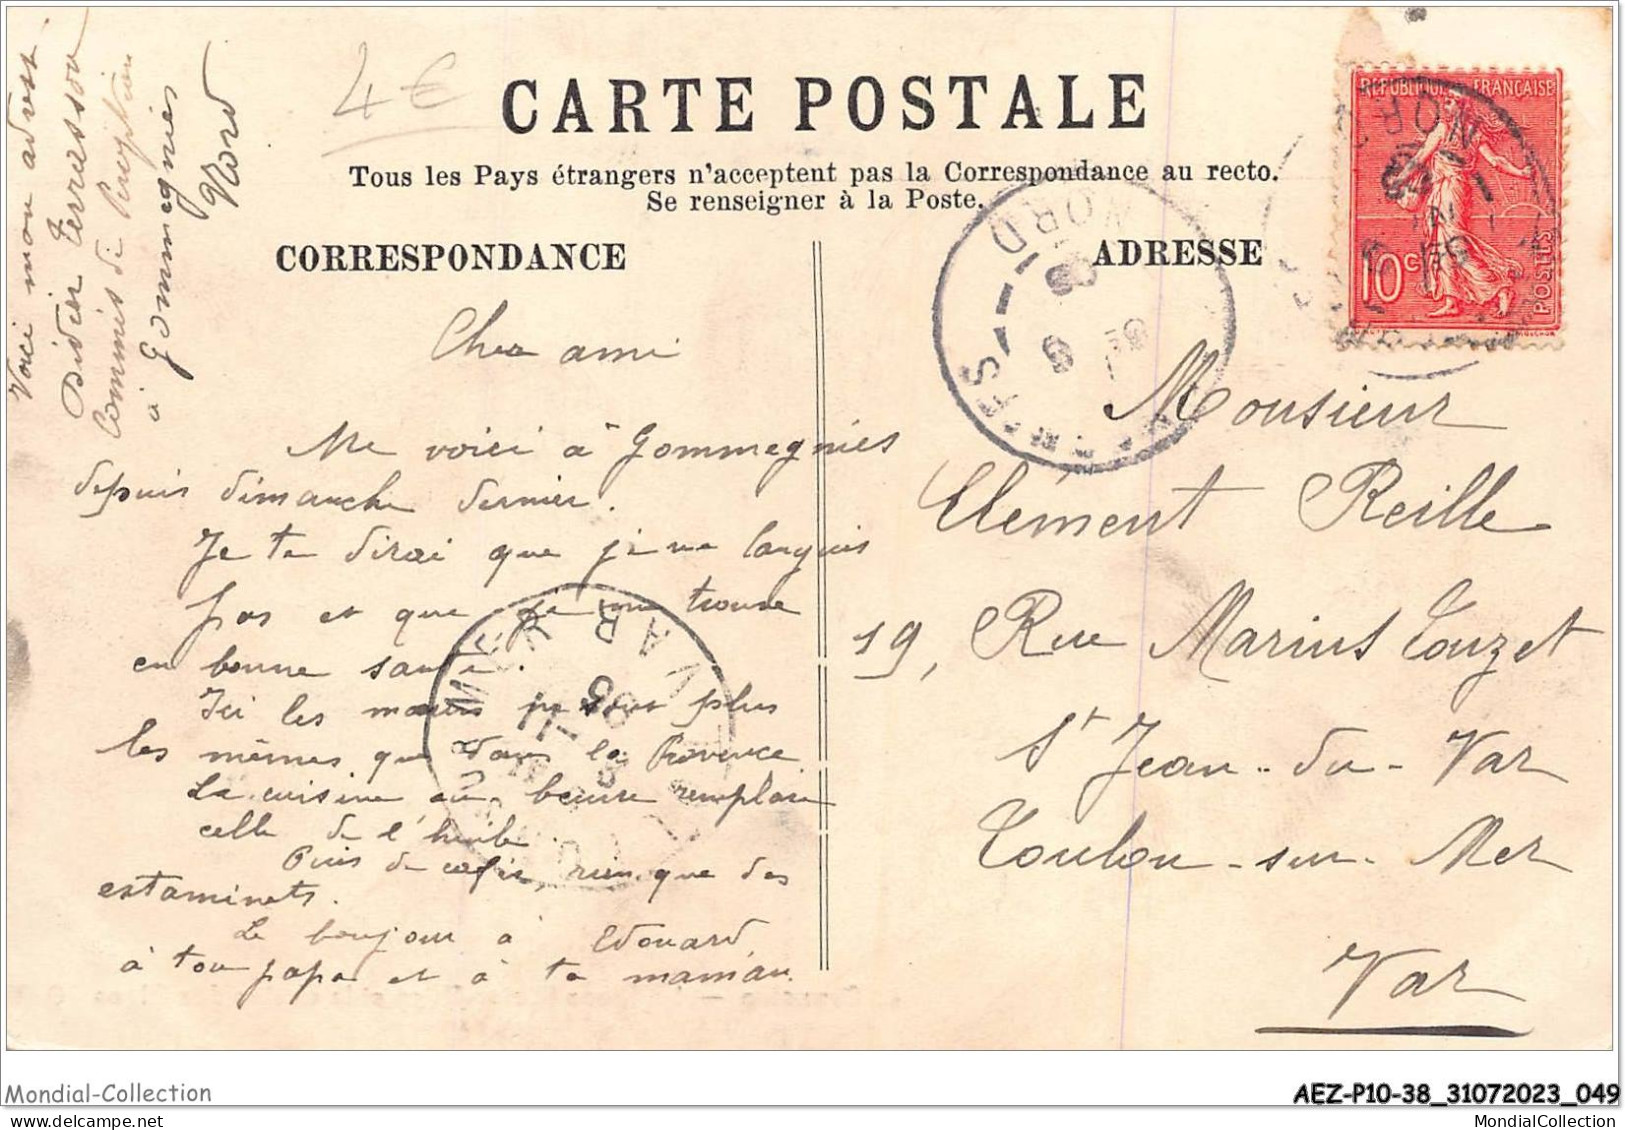 Voici mon adresse
Didier Terrasson
Commis de Perception
à
Gommegnies
Nord
4€
CARTE POSTALE
Tous les Pays étrangers n'acceptent pas la Correspondance au recto.
Se renseigner à la Poste.
CORRESPONDANCE
ADRESSE
RÉPUBLIQUE FRANÇAISE
10c
POSTES
NORD
NORD
VAR
Cher ami
Me voici à Gommegnies
depuis dimanche dernier.
Je te dirai que je ne languis
pas et que je me trouve
en bonne santé.
Ici les mœurs ne sont plus
les mêmes que dans la Provence
La cuisine au beurre remplace
celle de l'huile.
Puis de cafés, rien que des
estaminets.
Le bonjour à Edouard,
à ton papa et à ta maman.
Monsieur
Clément Reille
19, Rue Marius Touzet
St Jean-du-Var
Toulon-sur-Mer
Var
Mondial-Collection
AEZ-P10-38_31072023_049
MondialCollection